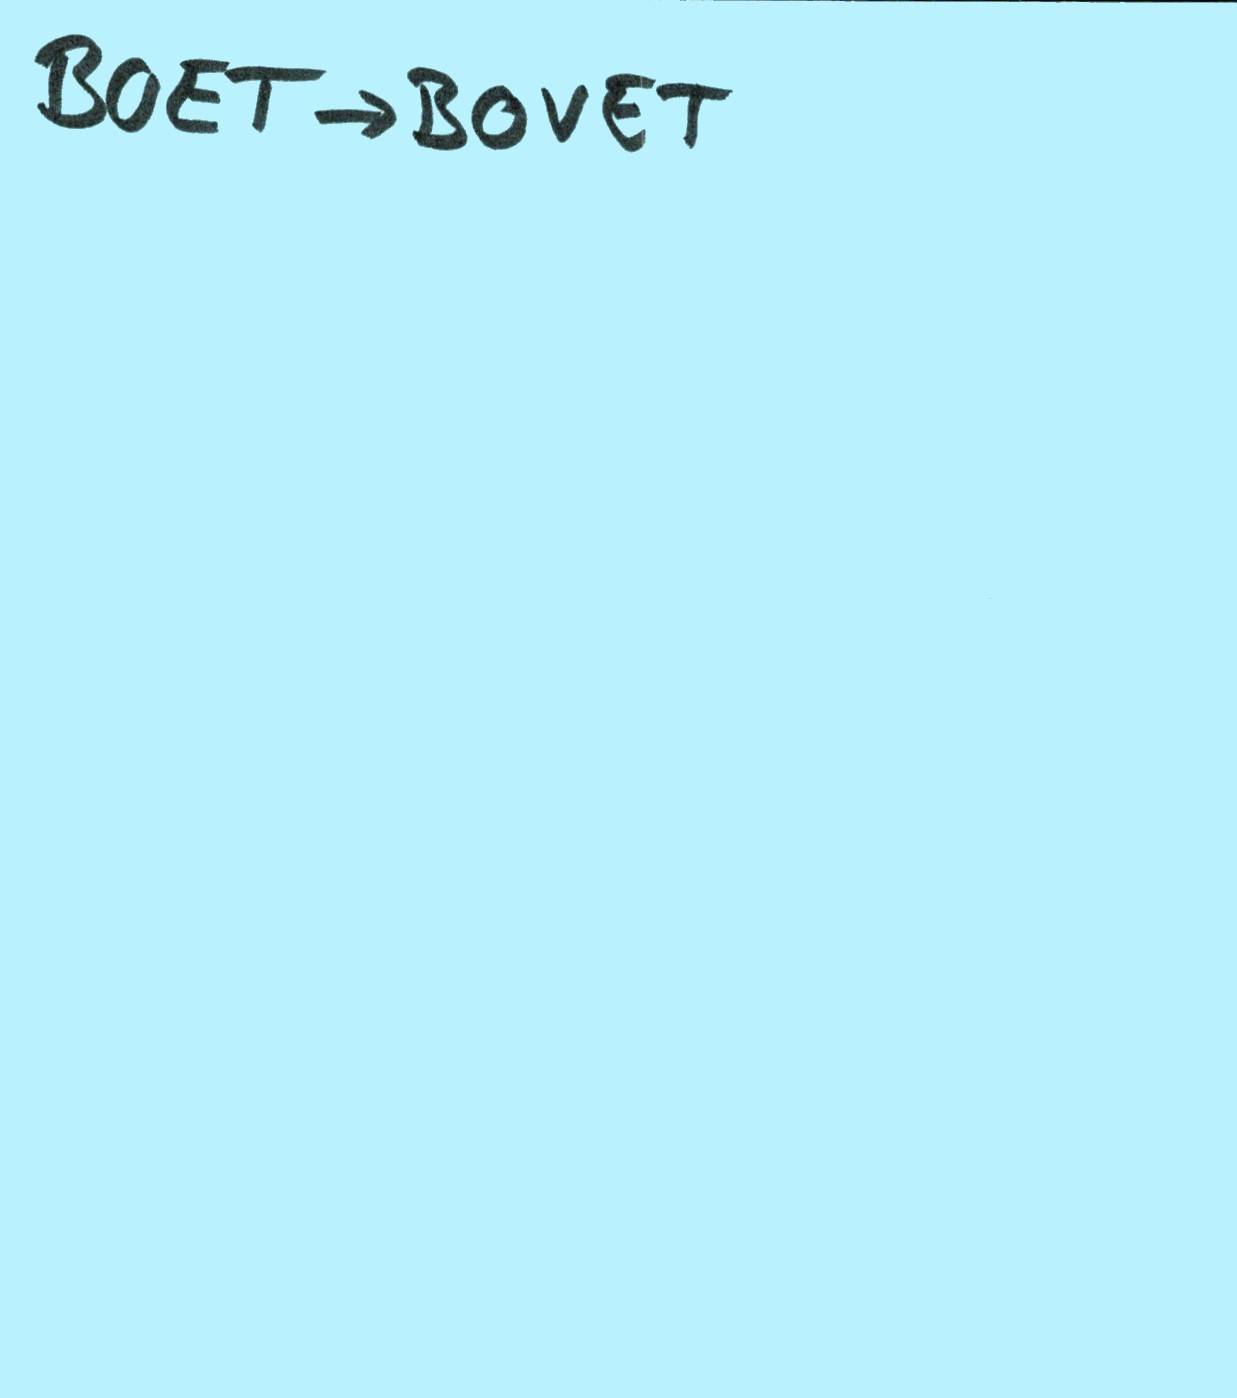 BOET → BOVET